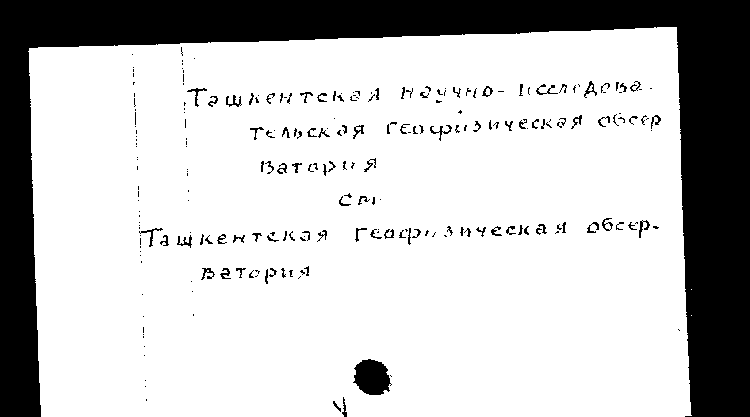 Ташкентская научно-исследова-
тельская геофизическая обсер
ватория
см.
Ташкентская геофизическая обсер-
ватория